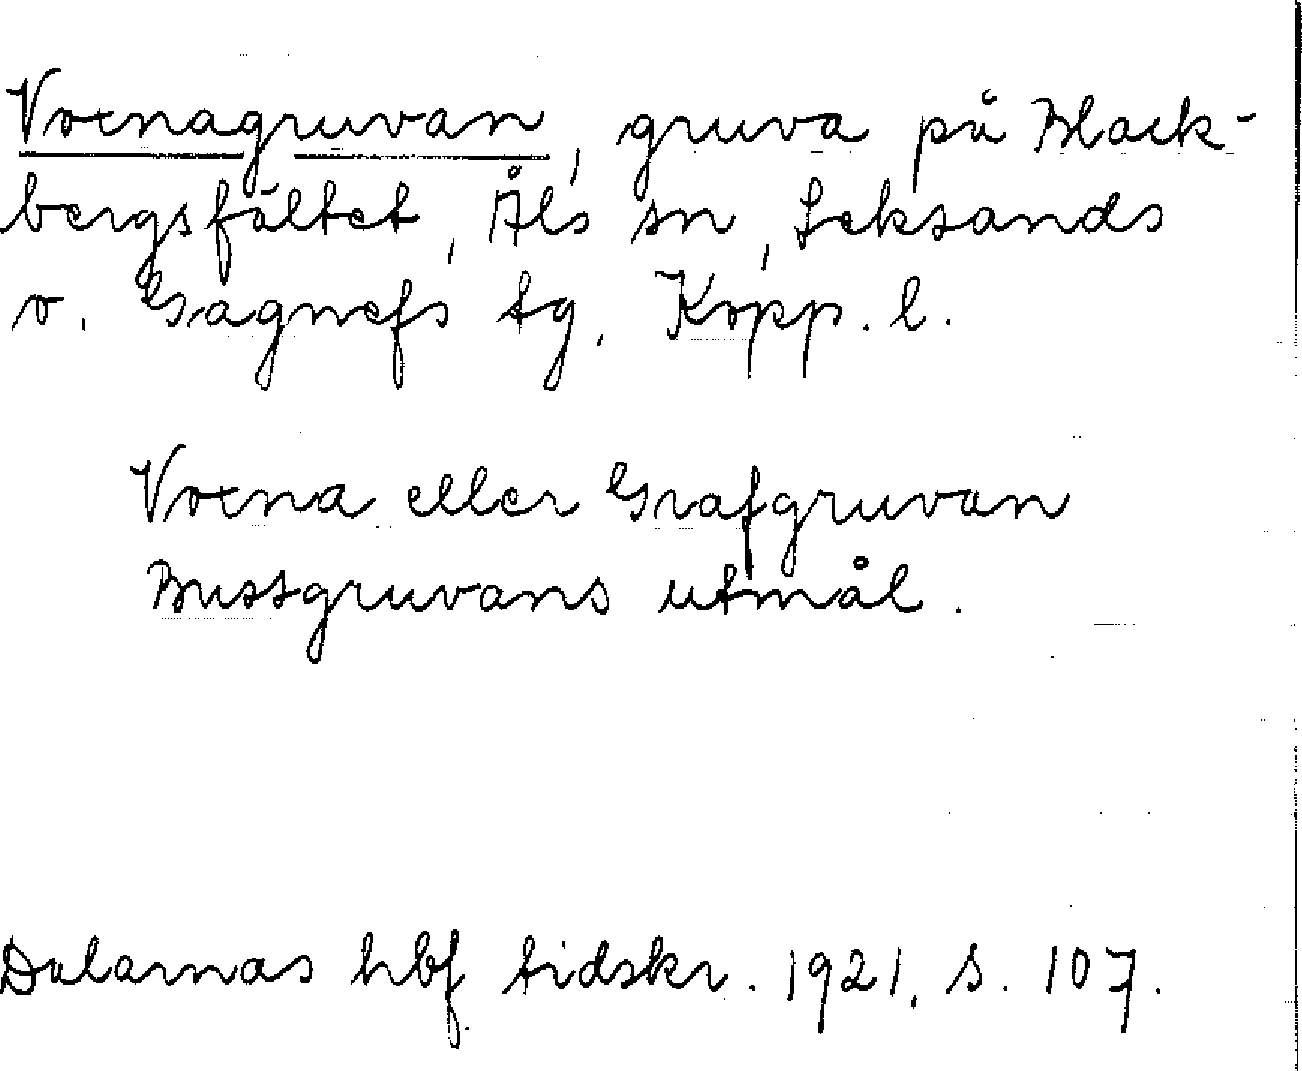 Voxnagruvan, gruva på Black-
bergsfältet, Åls sn, Leksands
o. Gagnefs tg, Kopp. l.
Voxna eller Grafgruvan
Bussgruvans utmål.
Dalarnas hbf tidskr. 1921, s. 107.